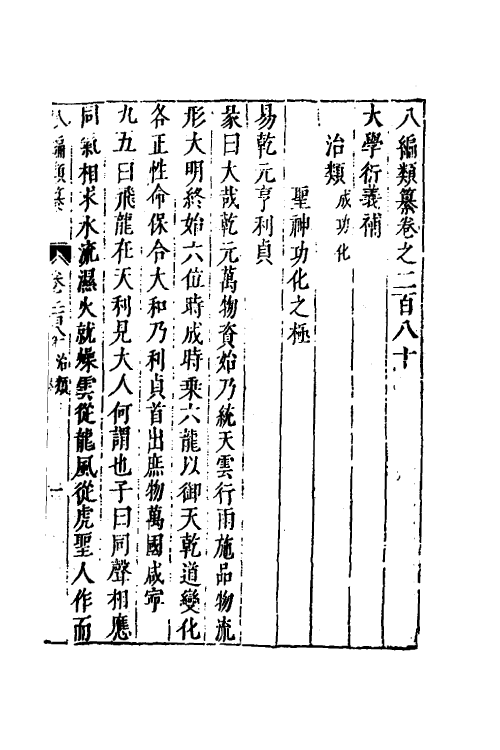 八編類纂卷之二百八十
大學衍義補
治類成功化
聖神功化之極
易乾元亨利貞
彖曰大哉乾元萬物資始乃統天雲行雨施品物流
形大明終始六位時成時乘六龍以御天乾道變化
各正性命保合大和乃利貞首出庶物萬國咸寧
九五曰飛龍在天利見大人何謂也子曰同聲相應
同氣相求水流濕火就燥雲從龍風從虎聖人作而
八編類纂 卷二百八十 治類 一